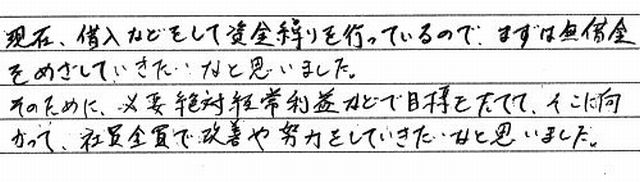 現在、借入などをして資金繰りを行っているので、まずは無借金
をめざしていきたいなと思いました。
そのために、必要絶対経常利益などで目標をたてて、そこに向
かって、社員全員で改善や努力をしていきたいなと思いました。